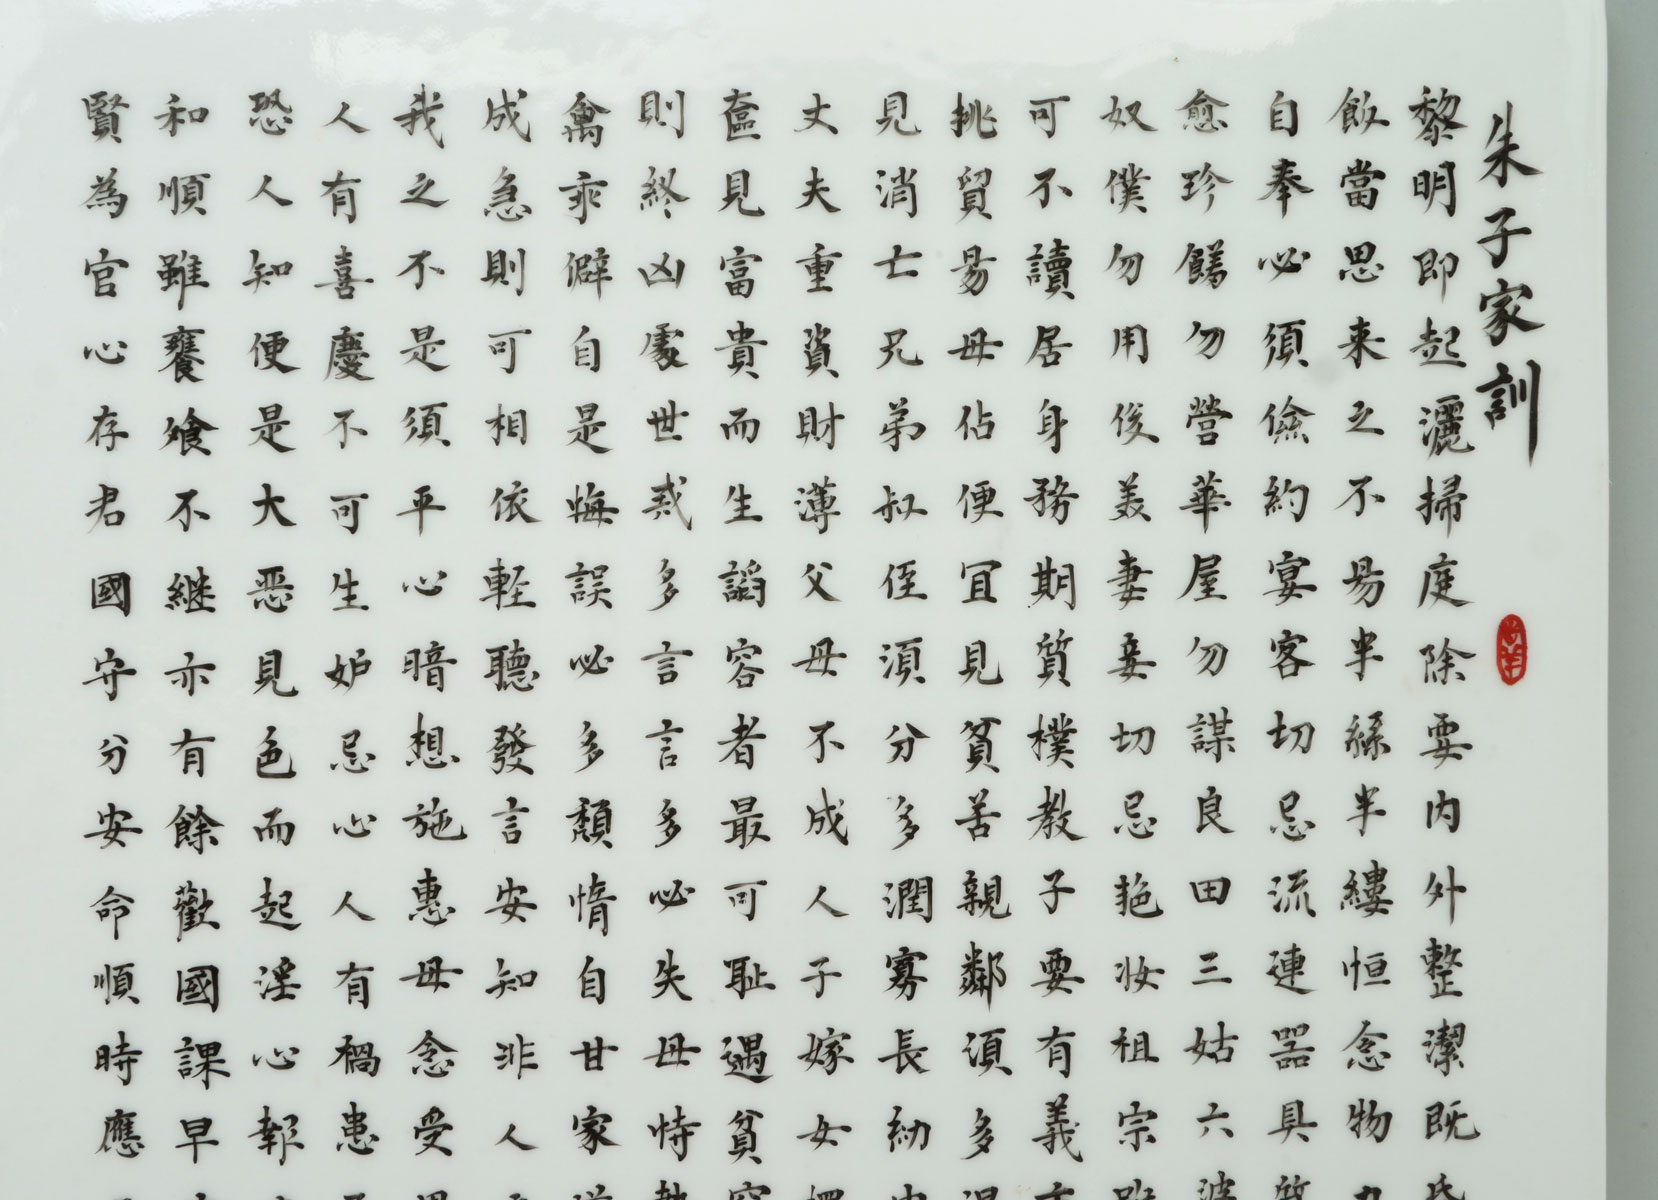 朱子家訓
黎明即起灑掃庭除要内外整潔既
飯當思来之不易半絲半縷恒念物
自奉必須儉約宴客切忌流連器具
愈珍饈勿營華屋勿謀良田三姑六
奴僕勿用俊美妻妾切忌艳妆祖宗
可不讀居身務期質樸教子要有義
挑貿易毋佔便宜見貧苦親鄰須多
見消亡兄弟叔侄須分多潤寡長幼
丈夫重資財薄父母不成人子嫁女
見富貴而生諂容者最可恥遇貧
則終凶處世戒多言言多必失毋恃
乖僻自是悔誤必多頹惰自甘家
成急則可相依輕聽發言安知非人
我之不是須平心暗想施惠毋念受
人有喜慶不可生妒忌心人有禍患
恐人知便是大恶見色而起淫心報
和順雖饔飧不継亦有餘歡國課早
賢為官心存君國守分安命順時應